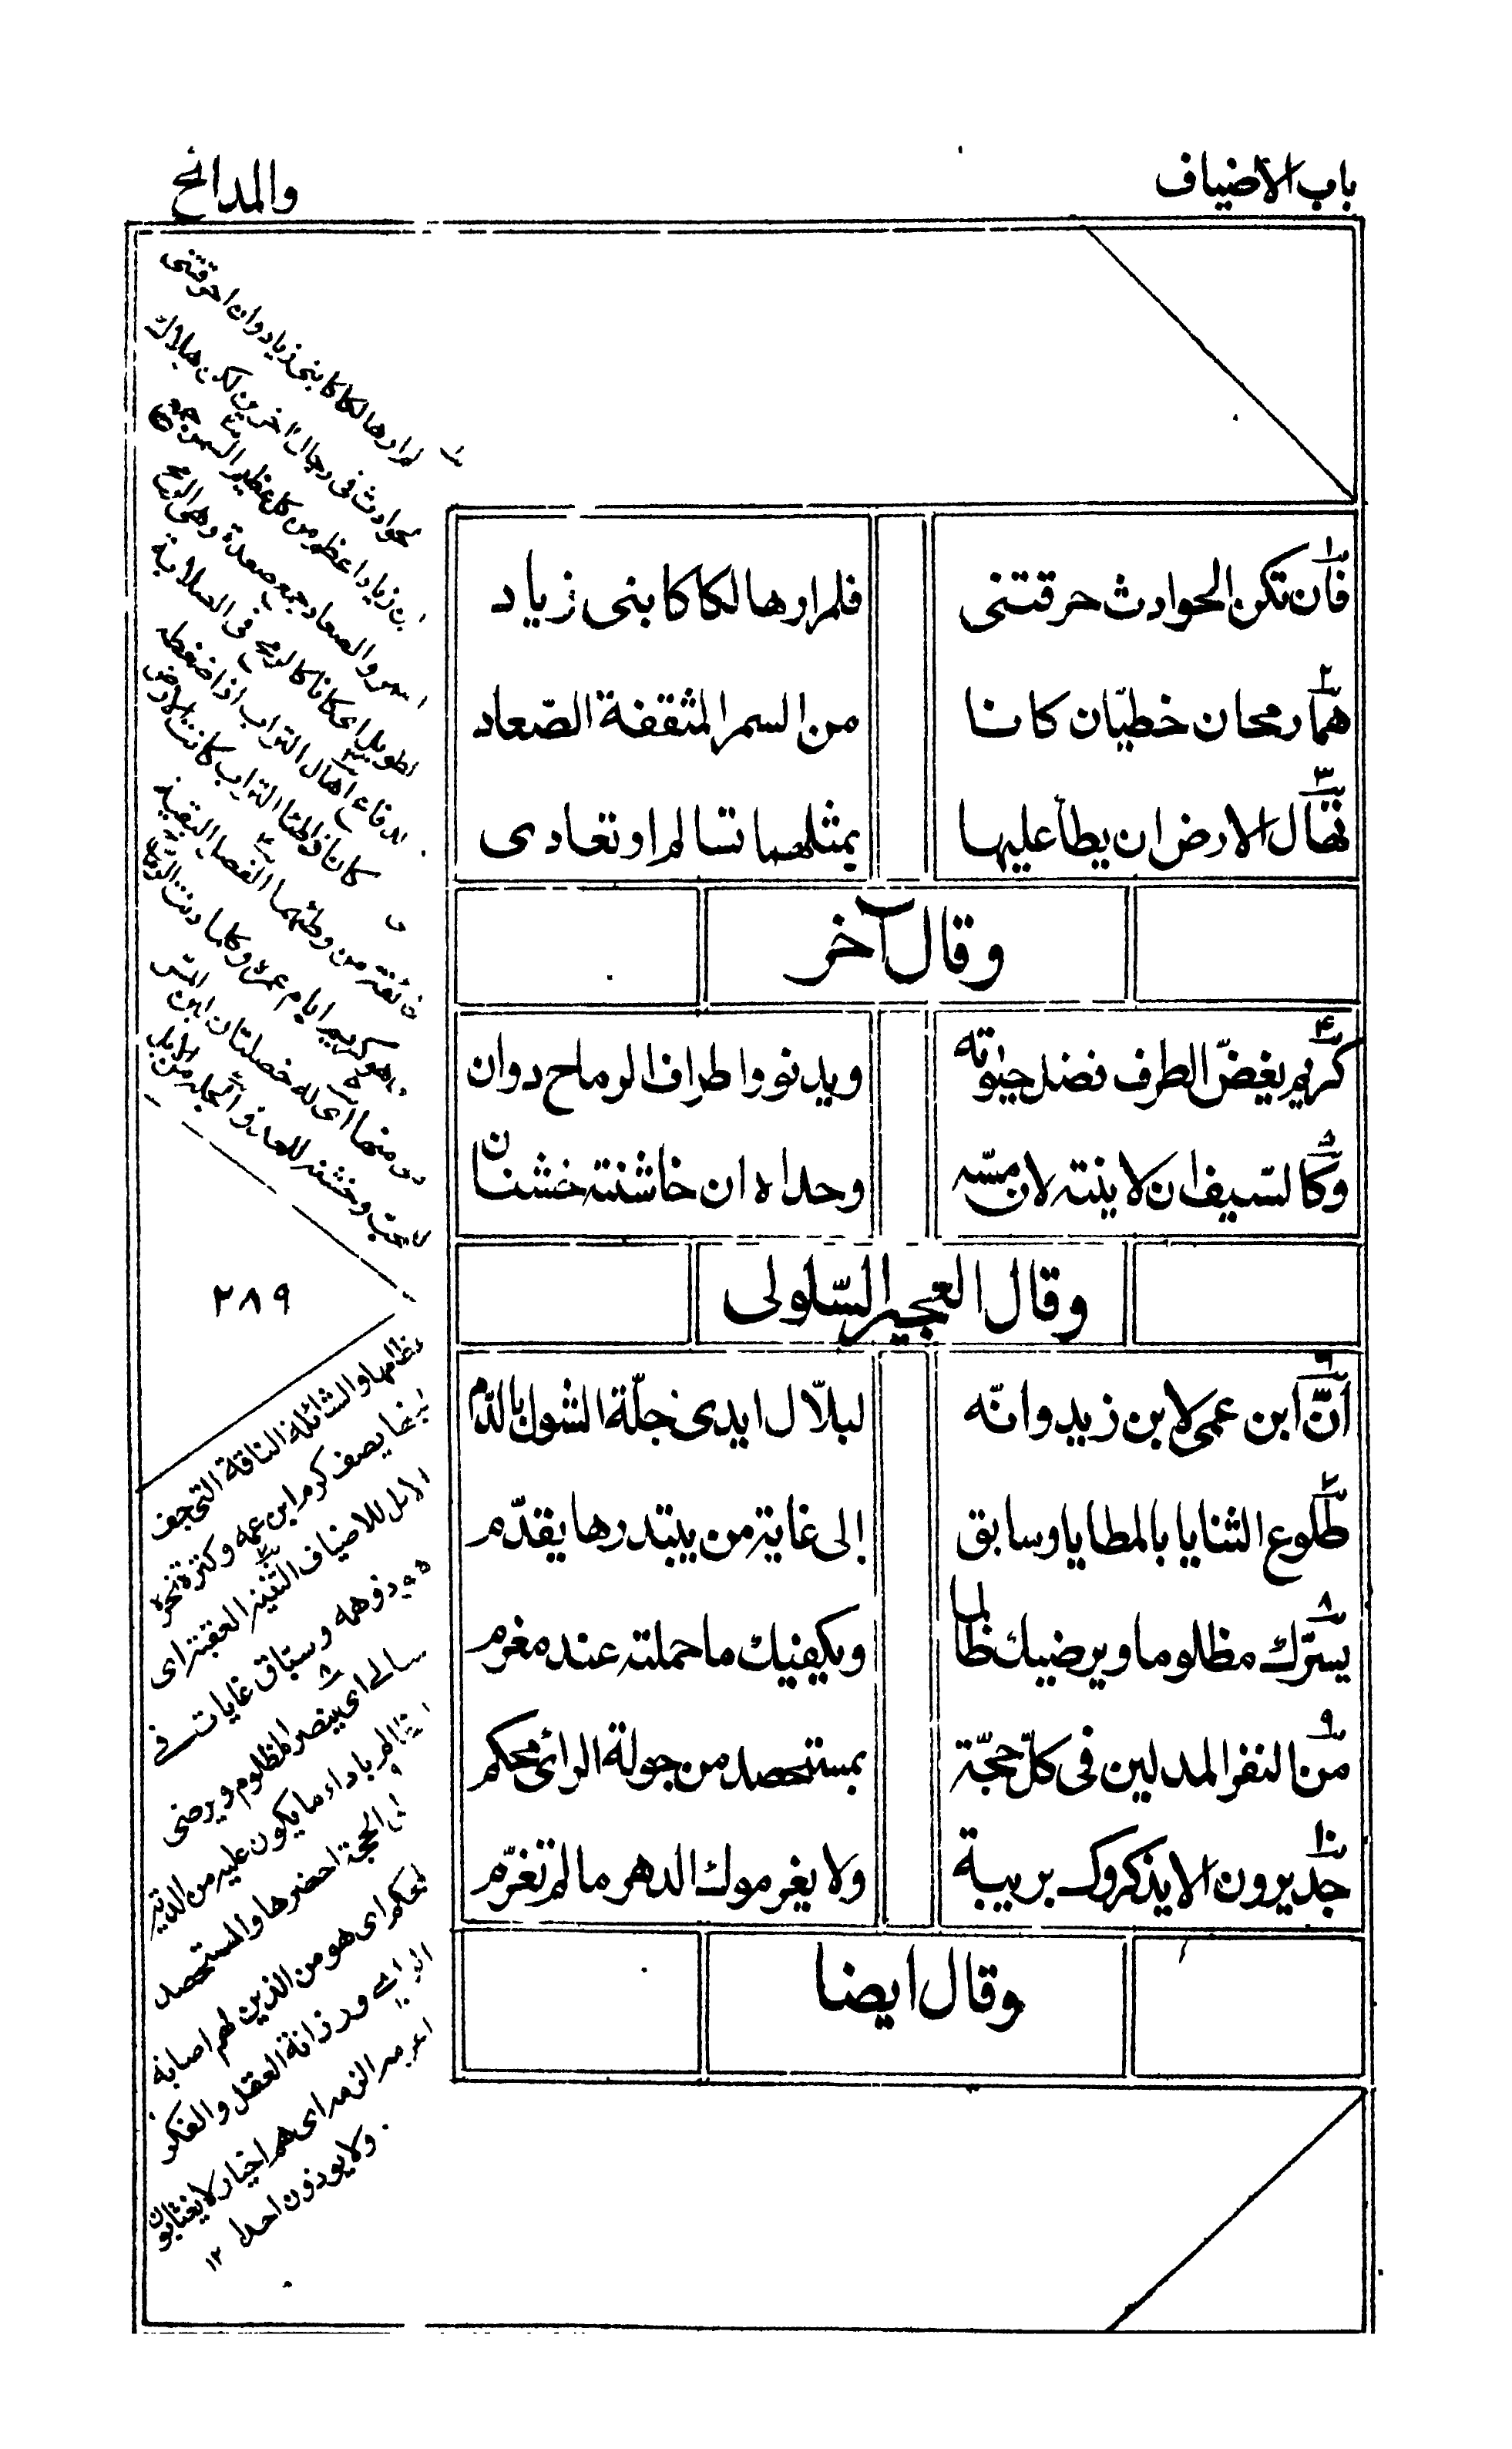 باب الاضياف
والمدائح
فان تكن الحوادث حرقتنى فلم ار هالكا كابنى زياد
هما رمحان خطيّان كانا من السمر المثقفة الصّعاد
تهال الارض ان يطأ عليها بمثلهما تسالم او تعادى
وقال آخر
كريم يغضّ الطرف فضل حيوته ويدنو واطراف الرماح دوان
وكالسّيف ان لاينته لان مسّه وحداه ان خاشنته خشنان
وقال العجير السّلولى
انّ ابن عمى لابن زيد وانّه لبلّال ايدى جلّة الشول بالدّم
طلوع الثنايا بالمطايا وسابق الى غاية من يبتدرها يقدّم
يسرّك مظلوما ويرضيك ظالما ويكفيك ما حملته عند مغرم
من النفر المدلين فى كلّ حجّة بمستحصد من جولة الرائ محكم
جديرون الا يذكروك بريبة ولا يغرموك الدهر ما لم تغرّم
وقال ايضا
لم ار هالكا كابنى زياد وان احرقتنى
حوادث فى رجال اخرين لكن هلاك
ابن زياد اعظم من كل عظيم السمر جمع
اسمر والصعاد جمع صعدة وهى الرمح
الطويل اى كانا كالرمح فى الصلابة
كانا اذا وطئا التراب كانت الارض
خائفة من وطئهما الفضل البقية
هو كريم ايام عمره وكلما دنت الرماح
دنو منها اى له خصلتان لين
٢٨٩
والشائلة الناقة التى جف
لبنها يصف كرم ابن عمه وكثرة نحره
الابل للاضياف الثنية العقبة اى
ذو همه وسبّاق غايات فى
اى ينصر المظلوم ويرضى
باداء ما يكون عليه من الدية
الحجة احضرها والمستحصد
المحكم اى هو من الذين لهم اصابة
الراى ورزانة العقل والفكر
اغرمه الزمه اى هم اخيار لا يغتابون
ولا يوذون احدا ١٢